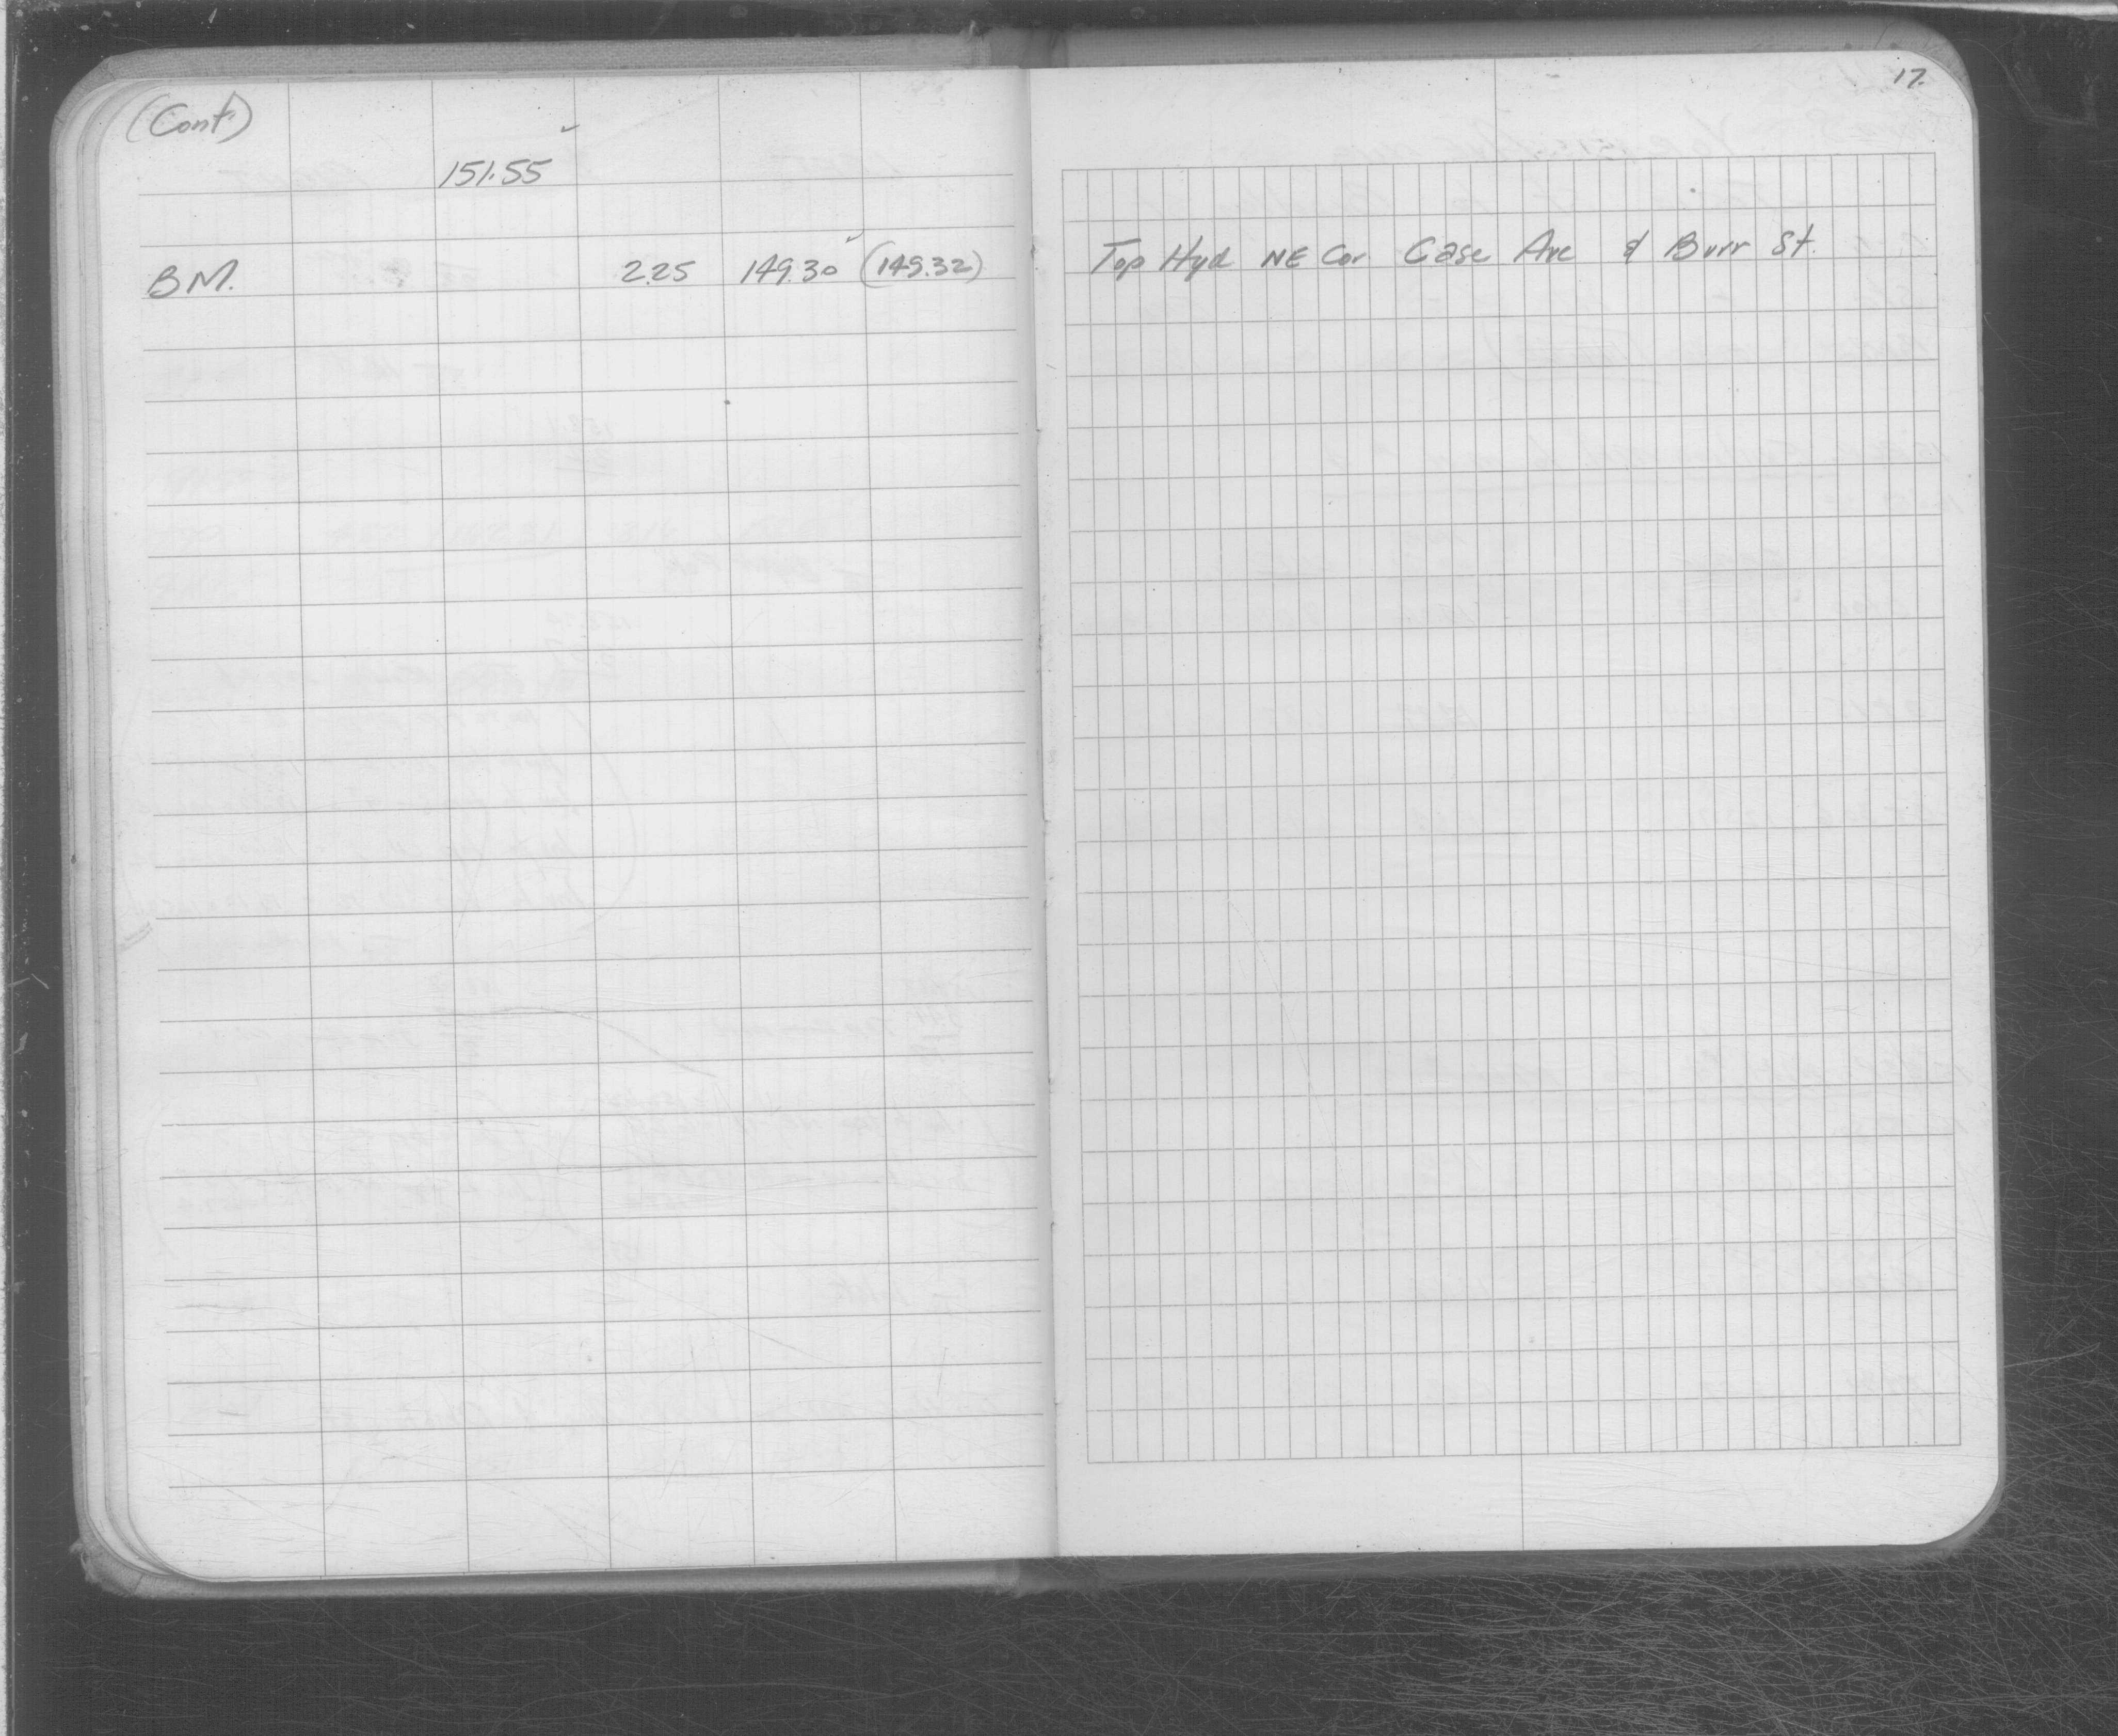 (Cont)
17.
151.55
BM. 2.25 149.30 (149.32) Top Hyd NE Cor Case Ave & Burr St.